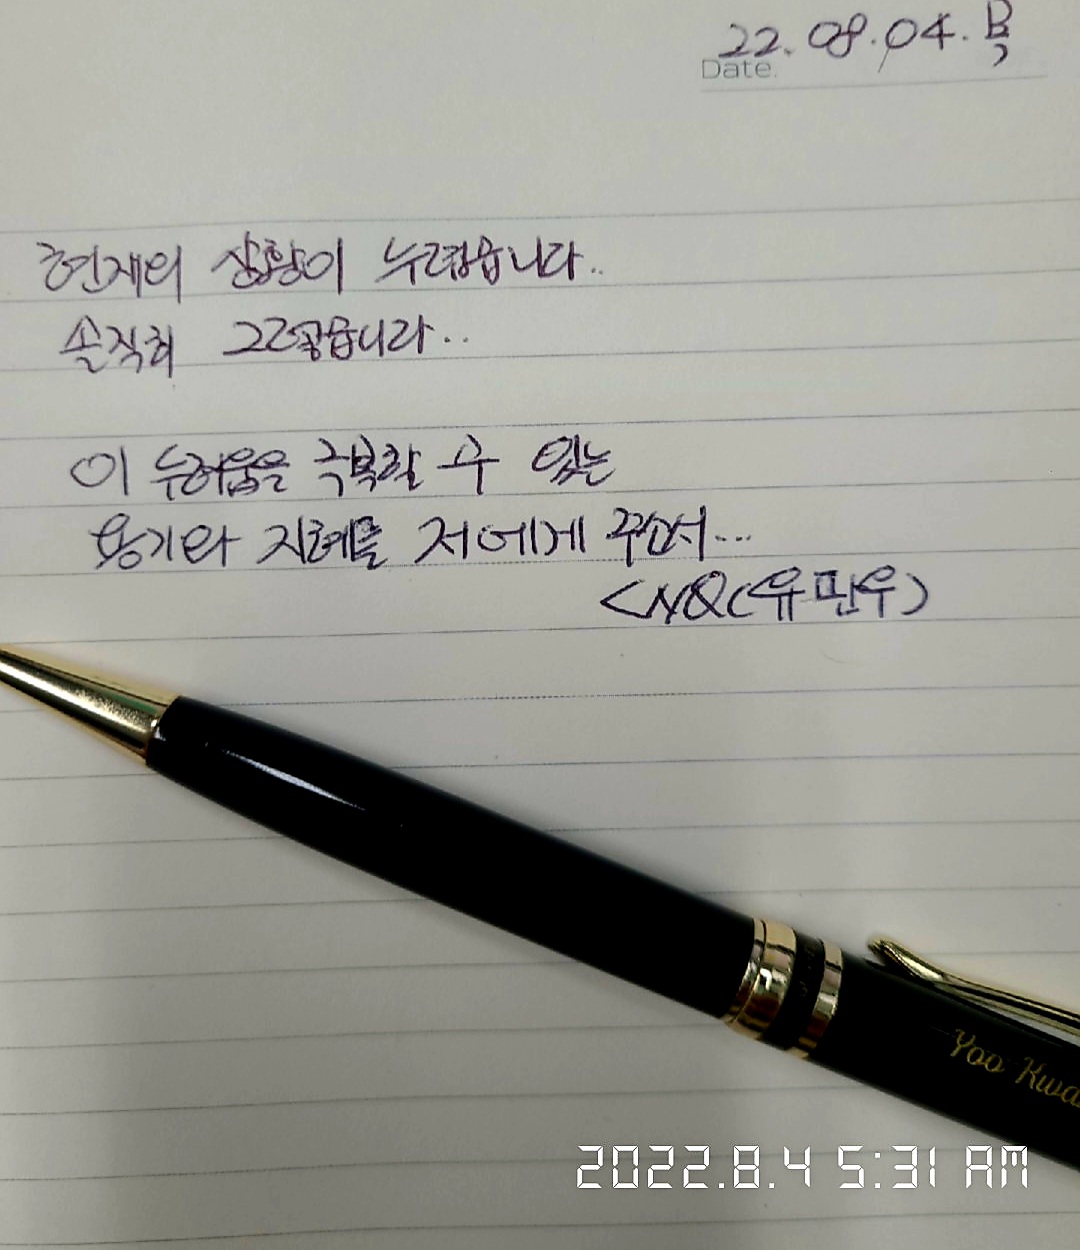 22. 08. 04. 목
Date.
현재의 상황이 두렵습니다..
솔직히 그렇습니다..
이 두려움을 극복할 수 있는
용기와 지혜를 저에게 주소서...
Yoo Kwa
2022.8.4 5:31 AM